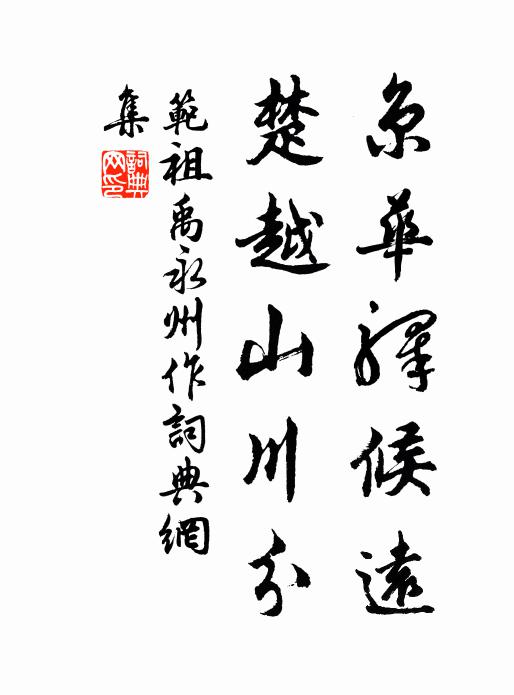 京華驛候遠
楚越山川分
範祖禹永州作詞典網
集
詞典
网印